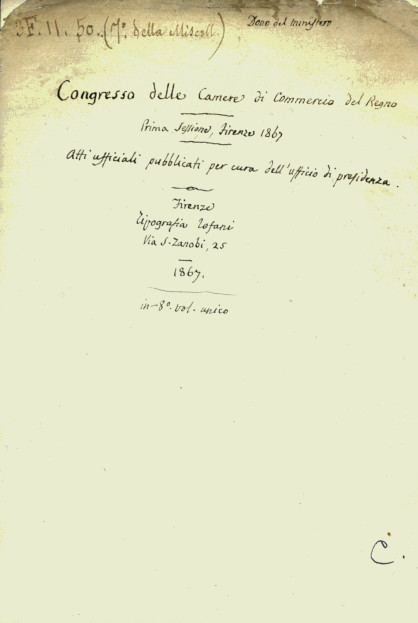 3F. 11. 50. (7.º della Miscell.)
Dono del ministero
Congresso delle Camere di Commercio del Regno
Prima Sessione, Firenze 1867
Atti ufficiali pubblicati per cura dell'ufficio di presidenza.
Firenze
Tipografia Tofani
Via S. Zanobi, 25
1867.
in-8º. vol. unico
C.